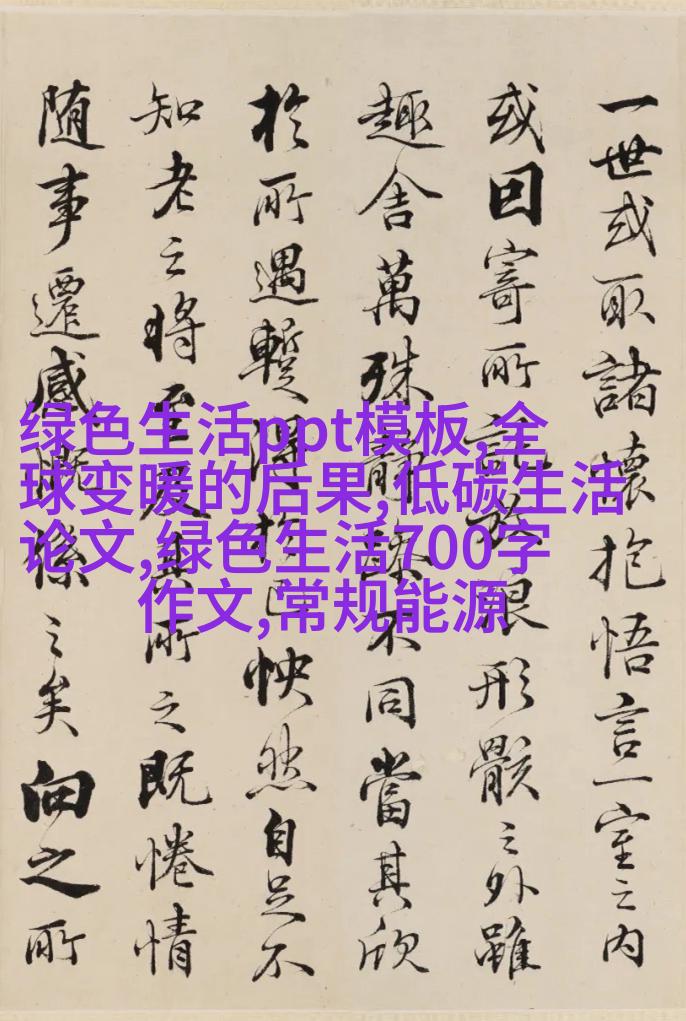 一世或取諸懷抱悟言一室之内
或因寄所託放浪形骸之外雖
趣舍萬殊静躁不同當其欣
於所遇蹔得於己怏然自足不
知老之将至及其所之既惓情
随事遷感慨係之矣向之所
绿色生活ppt模板,全
球变暖的后果,低碳生活
论文,绿色生活700字
作文,常规能源